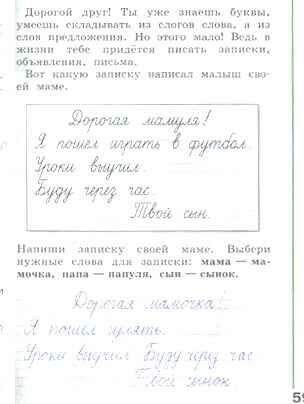 Дорогой друг! Ты уже знаешь буквы,
умеешь складывать из слогов слова, а из
слов предложения. Но этого мало! Ведь в
жизни тебе придётся писать записки,
объявления, письма.
Вот какую записку написал малыш сво-
ей маме.
Дорогая мамуля!
Я пошёл играть в футбол.
Уроки выучил.
Буду через час.
Твой сын.
Напиши записку своей маме. Выбери
нужные слова для записки: мама — ма-
мочка, папа — папуля, сын — сынок.
Дорогая мамочка!
Я пошёл гулять.
Уроки выучил Буду через час
Твой сынок